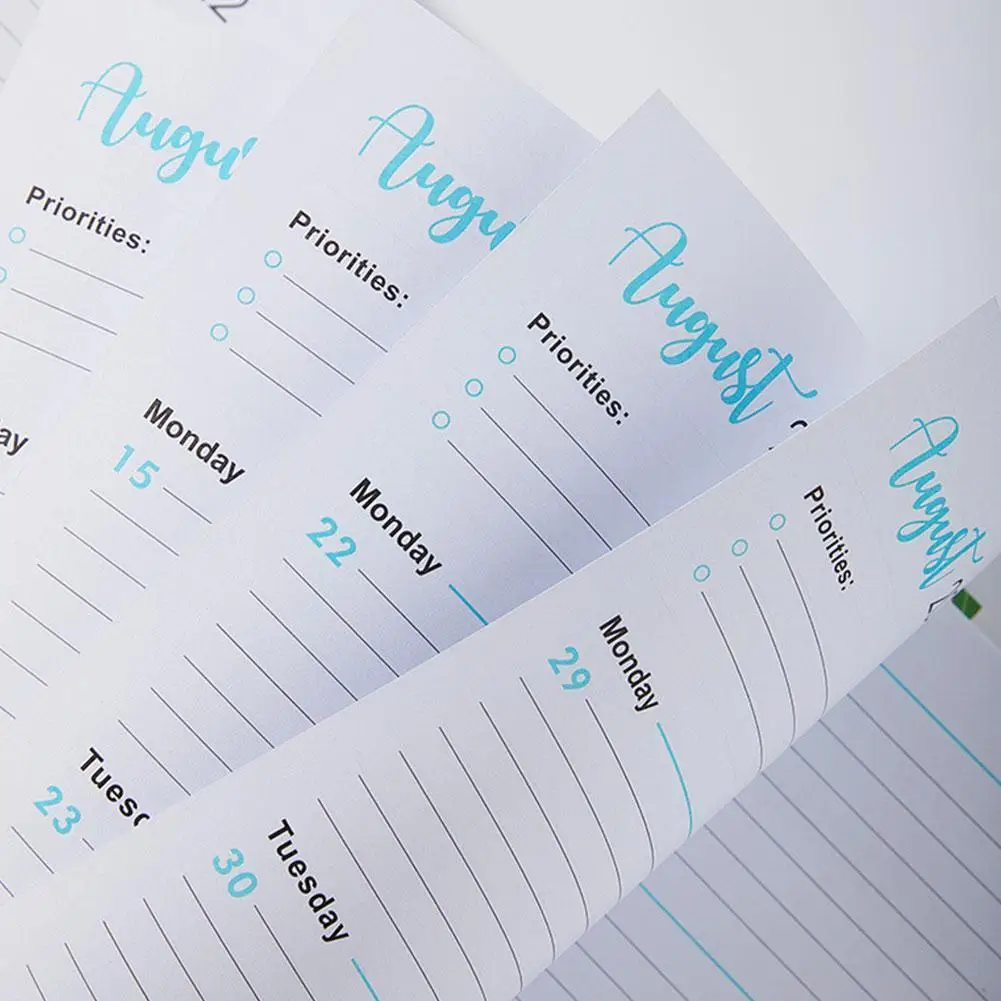 2
Augu
Priorities:
ay
Augu
Priorities:
Monday
15
August
Priorities:
Monday
22
Tuesd
23
August
Priorities:
Monday
29
Tuesday
30